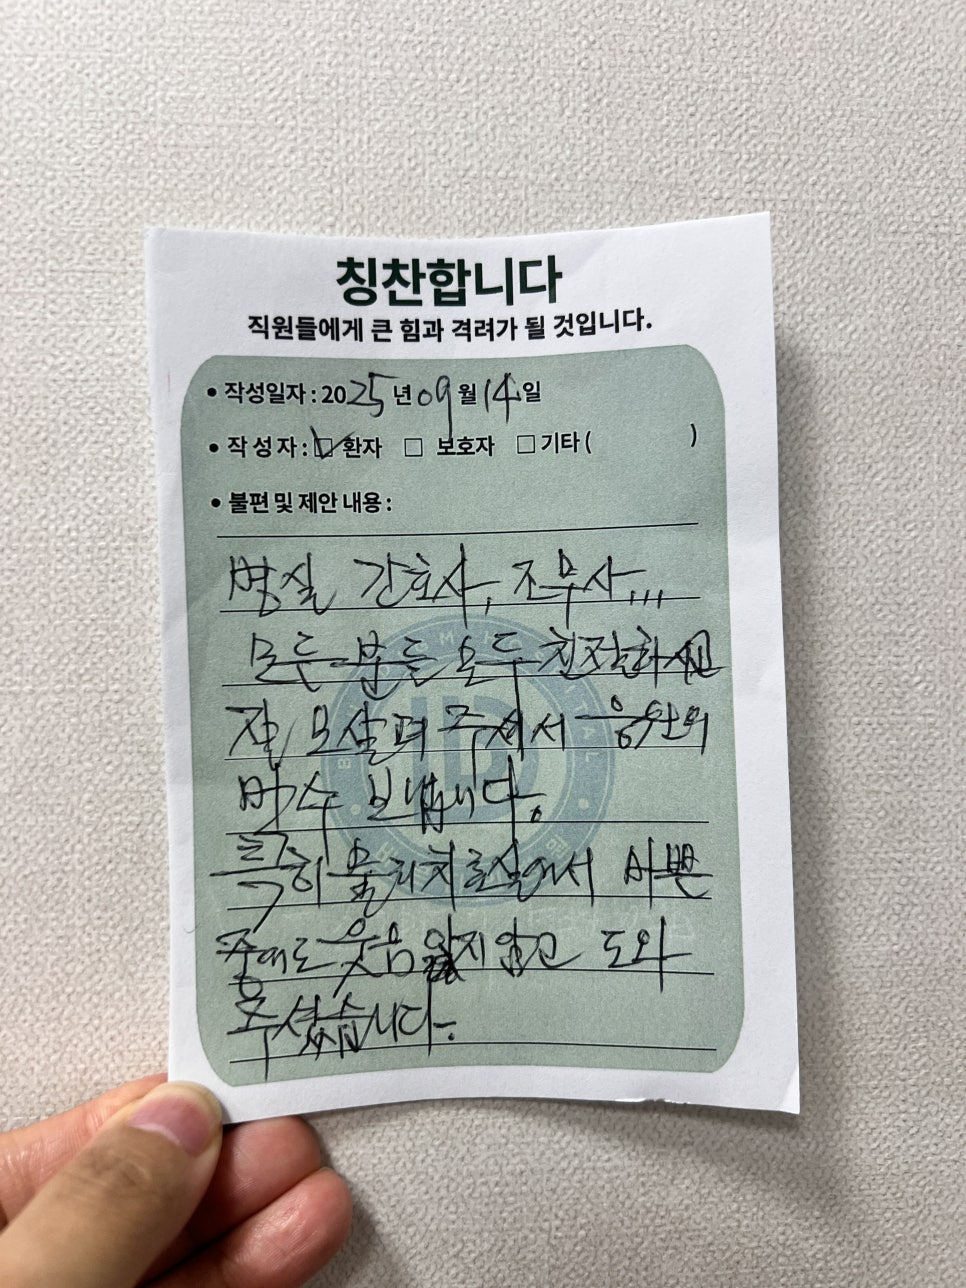 칭찬합니다
직원들에게 큰 힘과 격려가 될 것입니다.
• 작성일자 : 2025년 09월 14일
• 작 성 자 : ☑ 환자 □ 보호자 □ 기타 ( )
• 불편 및 제안 내용 :
병실 간호사, 조무사,,,
모든 분들 모두 친절하시고
잘 보살펴 주셔서 응원의
박수 보냅니다.
특히 물리치료실에서 바쁜
중에도 웃음 잃지않고 도와
주셨습니다.